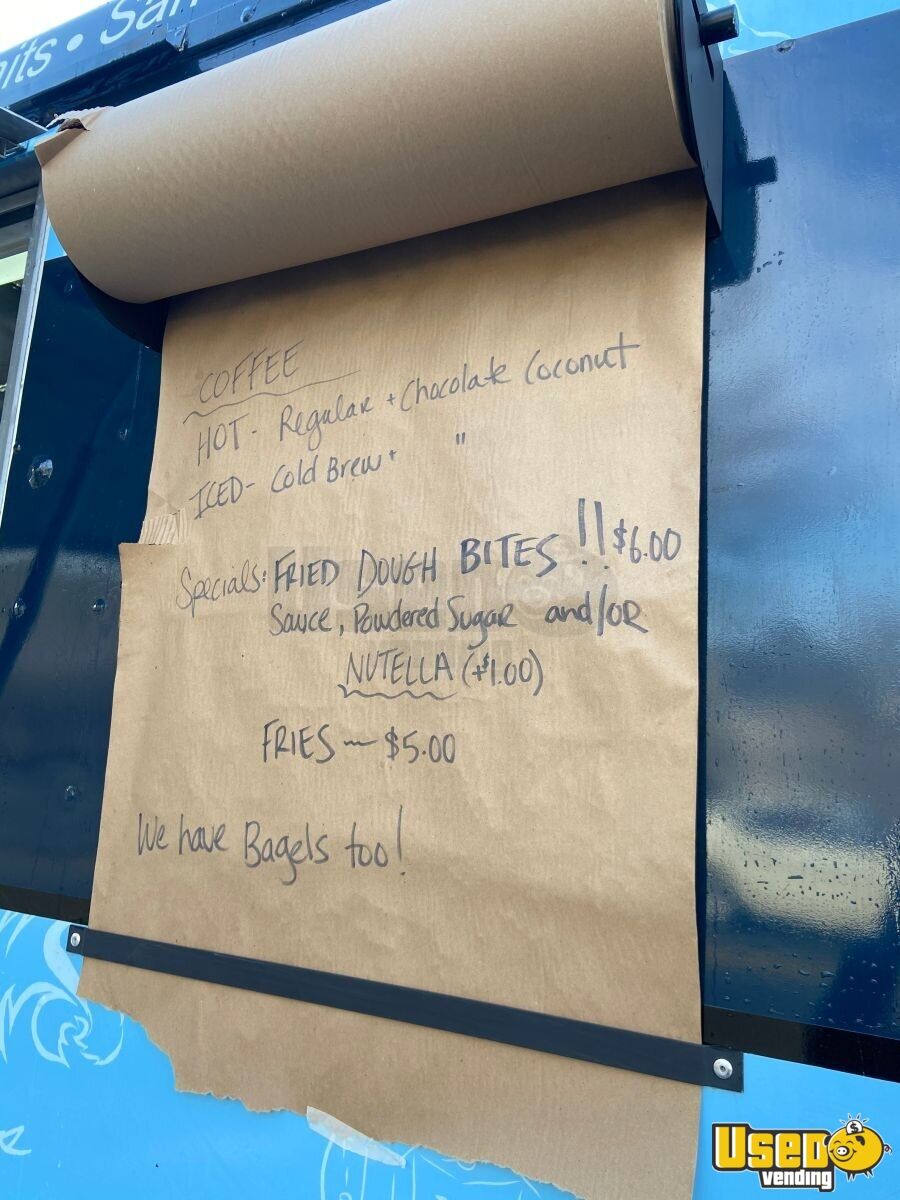 its • Sa
COFFEE
HOT - Regular + Chocolate Coconut
ICED - Cold Brew + "
Specials: FRIED DOUGH BITES!! $6.00
Sauce, Powdered Sugar and/OR
NUTELLA (+$1.00)
FRIES ~ $5.00
We have Bagels too!
USED
vending